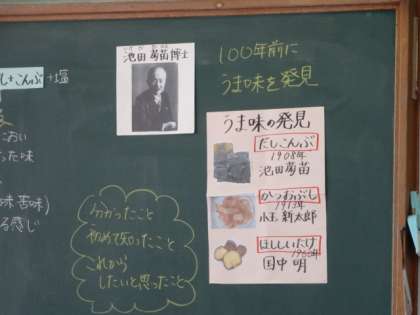 池田菊苗博士
100年前に
うま味を発見
だし+こんぶ+塩
におい
った味
味 苦味)
る感じ
うま味の発見
だしこんぶ
1908年
池田菊苗
かつおぶし
1913年
小玉 新太郎
ほししいたけ
1960年
国中 明
分かったこと
初めて知ったこと
これから
したいと思ったこと